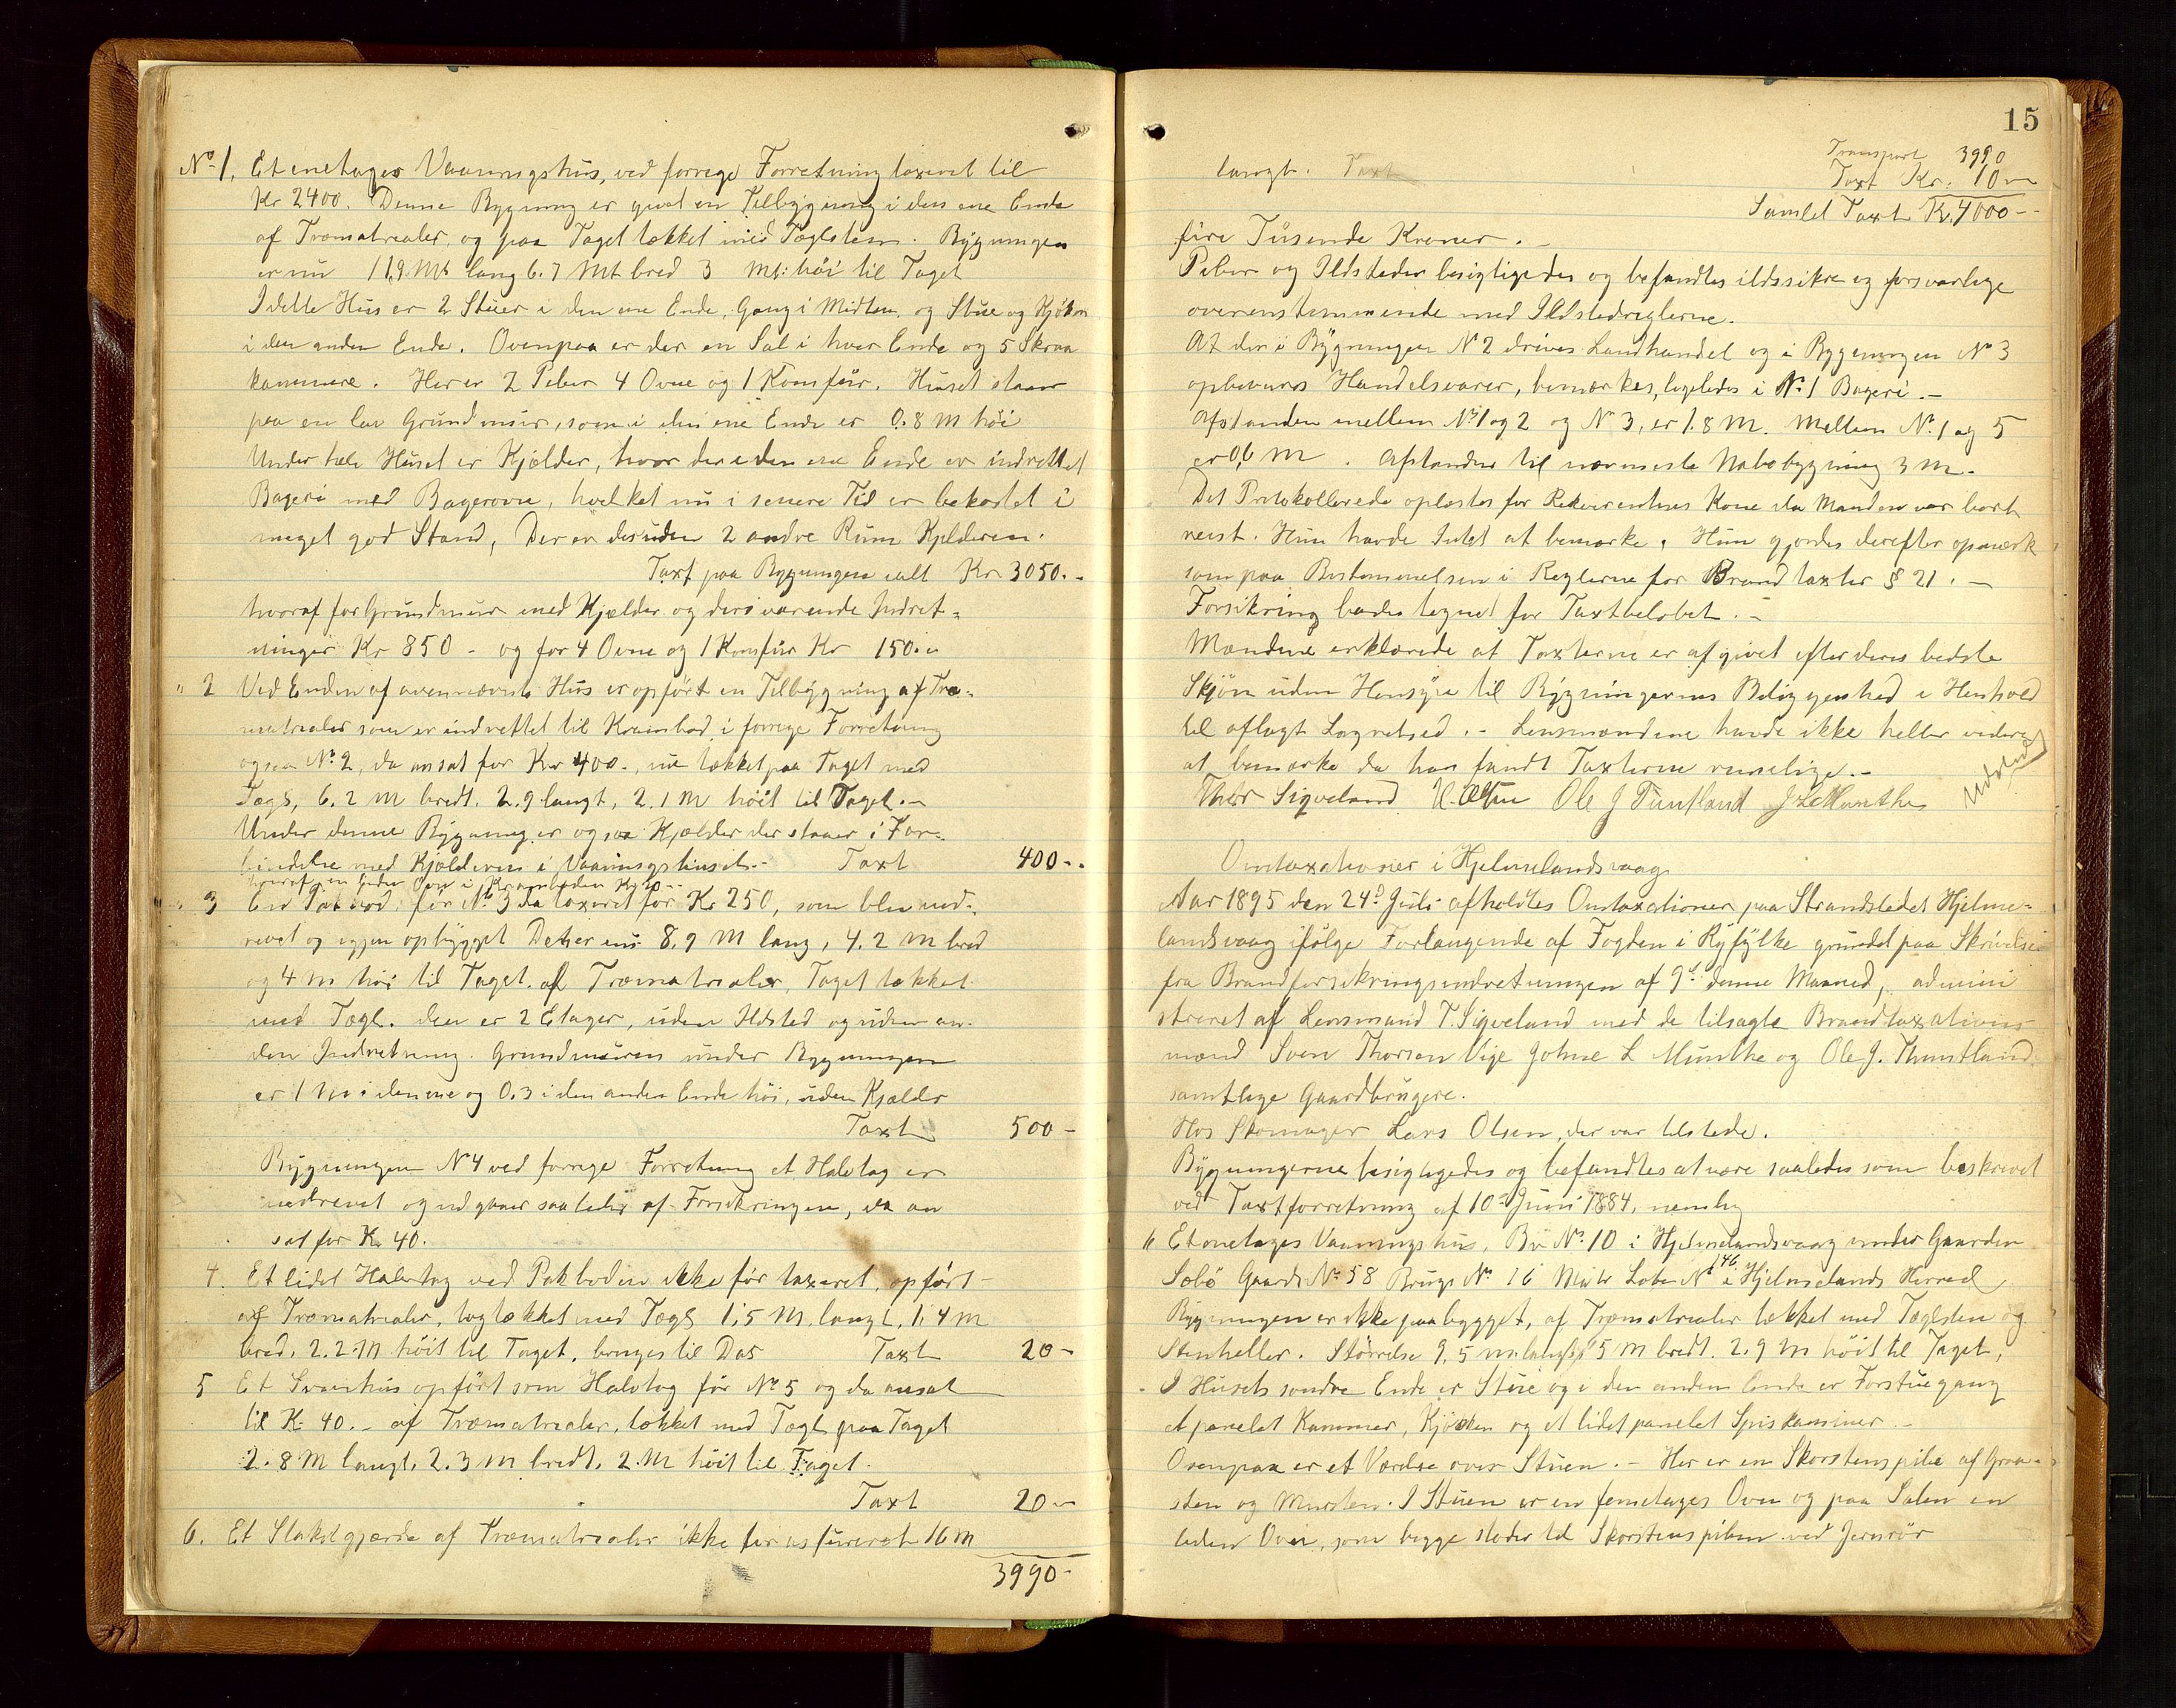 No 1. Et enetages Vaaningshus, ved forrige Forretning taxeret til
Kr 2400. Denne Bygning er givet en Tilbygning i den ene Ende
af Træmatrealer, og paa Taget tækket med Tæglsten. Bygningen
er nu 11,9 Mt lang 6.7 Mt bred 3 Mt: høi til Taget
I dette Hus er 2 Stuer i den ene Ende, Gang i Midten, og Stue og Kjøkken
i den anden Ende. Ovenpaa er der en Sal i hver Ende og 5 Skraa
kammere. Her er 2 Piber 4 Ovne og 1 Komfür. Huset staar
paa en lav Grundmur, som i den ene Ende er 0.8 M høi
Under hele Huset er Kjælder, hvor der i den ene Ende er indrettet
Bageri med Bagerovn, hvilket nu i senere Tid er bekostet i
meget god Stand, Der er desuden 2 andre Rum Kjelderen.
Taxt paa Bygningen ialt Kr 3050.-
hvoraf for Grundmur med Kjælder og dersivarende Indret-
ninger Kr 850 - og for 4 Ovne og 1 Komfür Kr 150.-
" 2 Ved Enden af ovennævnte Hus er opført en Tilbygning af Træ-
matrealer som er indrettet til Krambod, i forrige Forretning
ogsaa No 2, da ansat for Kr 400., nu tækket paa Taget med
Tægl, 6.2 M bredt. 2.9 langt, 2.1 M høit til Taget.-
Under denne Bygning er ogsaa Kjælder der staar i For-
bindelse med Kjælderen i Vaaningshuset.- Taxt 400-.
hvoraf en liden Ovn i Kramboden Kr 20 --
" 3 En Pakbod, før No 3 da taxeret for Kr 250, som blev ned-
revet og igjen opbygget Det er nu 8.9 M lang, 4.2 M bred
og 4 M høi til Taget. af Træmatrealer, Taget tækket
med Tægl. den er 2 Etager, uden Ildsted og uden an-
den Indretning. Grundmuren under Bygningen
er 1 M i den ene og 0.3 i den anden Ende høi, uden Kjælder
Taxt 500 -
Bygningen N 4 ved forrige Forretning et Halvtag er
nedrevet og udgaar saaledes af Forsikringen, da an
sat for Kr 40.
4. Et lidet Halvtag ved Pakboden ikke før taxeret, opført
af Træmatrealer, tagtækket med Tægl 1.5 M. langt, 1.4 M
bred, 2.2 M høit til Taget, bruges til Das Taxt 20 -
5 Et Svinehus opført som Halvtag før No 5 og da ansat
til Kr 40.- af Træmatrealer, tækket med Tægl paa Taget
2.8 M langt, 2.3 M bredt, 2 M høit til Taget.
Taxt 20 -
6. Et Stakitgjærde af Træmatrealer ikke før assureret 16 M
3990 -
15
Transport 3990
langt. Taxt Taxt Kr: 10 -
Samlet Taxt Kr. 4000 --
fire Tusende Kroner.-
Piber og Ildsteder besigtigedes og befandtes ildssikre og forsvarlige
overenstemmende med Ildstedreglerne.
At der i Bygningen N 2 drives Landhandel og i Bygningen No 3
opbevares Handelsvarer, bemærkes, ligeledes i No 1 Bageri.-
Afstanden mellem No 1 og 2 og N 3, er 1.8 M. Mellem No 1 og 5
er 0,6 M. Afstanden til nærmeste Nabobygning 3 M.
Det Protokollerede oplæstes for Rekvirentens Kone da Manden var bort
reist. Hun havde Intet at bemærke. Hun gjordes derefter opmærk
som paa Bestemmelsen i Reglerne for Brandtaxter § 21.-
Forsikring bedes tegnet for Taxtbeløbet.-
Mændene erklærede at Taxterne er afgivet efter deres bedste
Skjøn uden Hensyn til Bygningernes Beliggenhed i Henhold
til aflagt Lagretsed.- Lensmændene havde ikke heller videre
at bemærke da han fandt Taxterne rimelige.-
Thor Sigveland Ole J Tuntland J L Munthe
Udstedt
Omtaxationer i Hjelmelandsvaag
Aar 1895 den 24d Juli afholdtes Omtaxationer paa Strandstedet Hjelme-
landsvaag ifølge Forlangende af Fogden i Ryfylke grundet paa Skrivelse
fra Brandforsikringsindretningen af 9d denne Maaned, admini
streret af Lensmand T. Sigveland med de tilsagte Brandtaxations-
mænd Sven Thorsen Vige Johne L Munthe og Ole J. Thuntland
samtlige Gaardbrugere.
Hos Skomager Lars Olsen, der var tilstede.
Bygningerne besigtigedes og befandtes at være saaledes som beskrevet
ved Taxtforretning af 10de Juni 1884, nemlig
" Et enetages Vaaningshus, Br No. 10 i Hjelmelandsvaag under Gaarden
Sæbø Gaards No 58 Brugs No 16 Matr Løbe N 146 i Hjelmelands Herred
Bygningen er ikke paabygget, af Træmatrealer tækket med Tæglsten og
Stenheller. Størrelse 9,5 m langt, 5 M bredt. 2.9 M høit til Taget,
I Husets søndre Ende er Stue og i den anden Ende er Forstuegang
et panelet Kammer, Kjøkken og et lidet panelet Spiskammer.-
Ovenpaa er et Værelse over Stuen.- Her er en Skorstenspibe af Graa-
sten og Mursten. I Stuen er en femetages Ovn og paa Salen en
liden Ovn, som begge støder til Skorstenspiben ved Jernrør